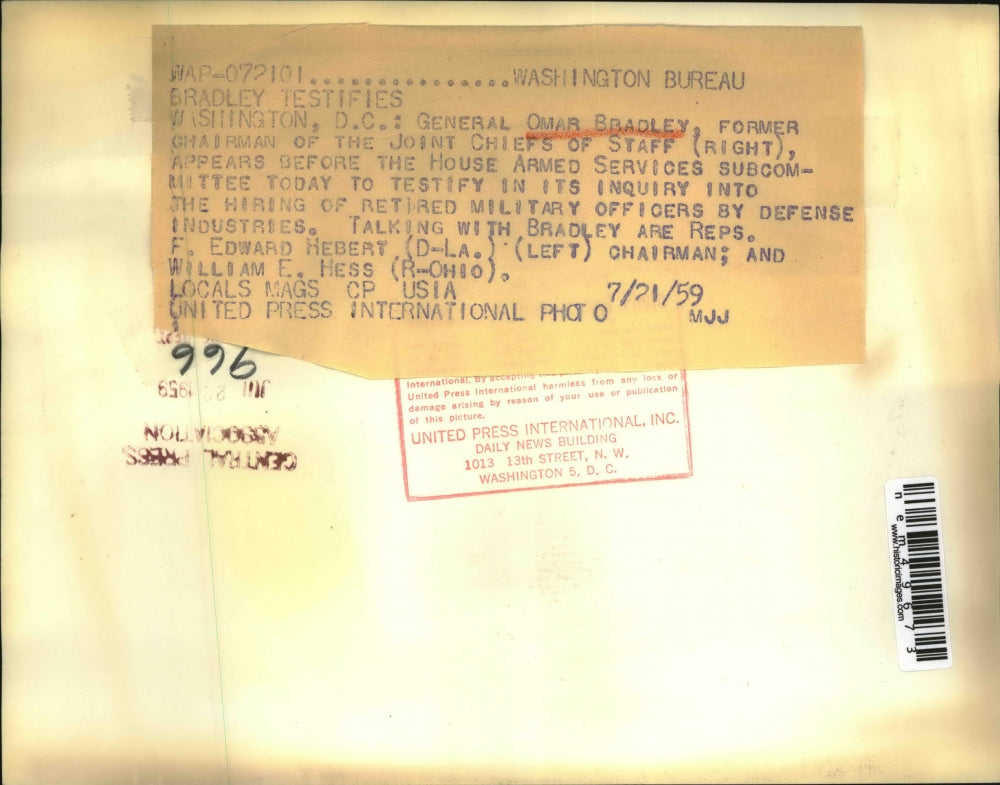 WAP-072101................WASHINGTON BUREAU
BRADLEY TESTIFIES
WASHINGTON, D.C.: GENERAL OMAR BRADLEY, FORMER
CHAIRMAN OF THE JOINT CHIEFS OF STAFF (RIGHT),
APPEARS BEFORE THE HOUSE ARMED SERVICES SUBCOM-
MITTEE TODAY TO TESTIFY IN ITS INQUIRY INTO
THE HIRING OF RETIRED MILITARY OFFICERS BY DEFENSE
INDUSTRIES. TALKING WITH BRADLEY ARE REPS.
F. EDWARD HEBERT (D-LA.) (LEFT) CHAIRMAN; AND
WILLIAM E. HESS (R-OHIO).
LOCALS MAGS CP USIA 7/21/59
UNITED PRESS INTERNATIONAL PHOTO MJJ
996
JUL 22 1959
CENTRAL PRESS
ASSOCIATION
International. By accepting
United Press International harmless from any loss or
damage arising by reason of your use or publication
of this picture.
UNITED PRESS INTERNATIONAL, INC.
DAILY NEWS BUILDING
1013 13th STREET, N. W.
WASHINGTON 5, D. C.
nem49673
www.historicimages.com